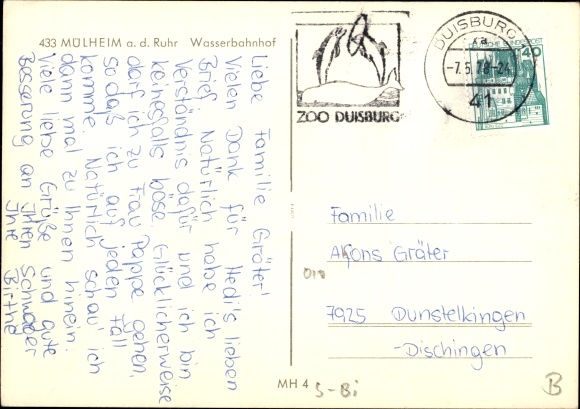 433 MÜLHEIM a. d. Ruhr Wasserbahnhof
Liebe Familie Gräter!
Vielen Dank für Hedi's lieben
Brief. Natürlich habe ich
Verständnis dafür und ich bin
keinesfalls böse. Glücklicherweise
darf ich zu Frau Pappe gehen,
so daß ich auf jeden Fall
komme. Natürlich schau' ich
dann mal zu Ihnen hinein.
Viele liebe Grüße und gute
Besserung an Ihren Schwager
Ihre Birthe
ZOO DUISBURG
DUISBURG
-7.5.78-24
41
DEUTSCHE BUNDESPOST
40
Familie
Alfons Gräter
7925 Dunstelkingen
-Dischingen
MH 4
S-Bi
B